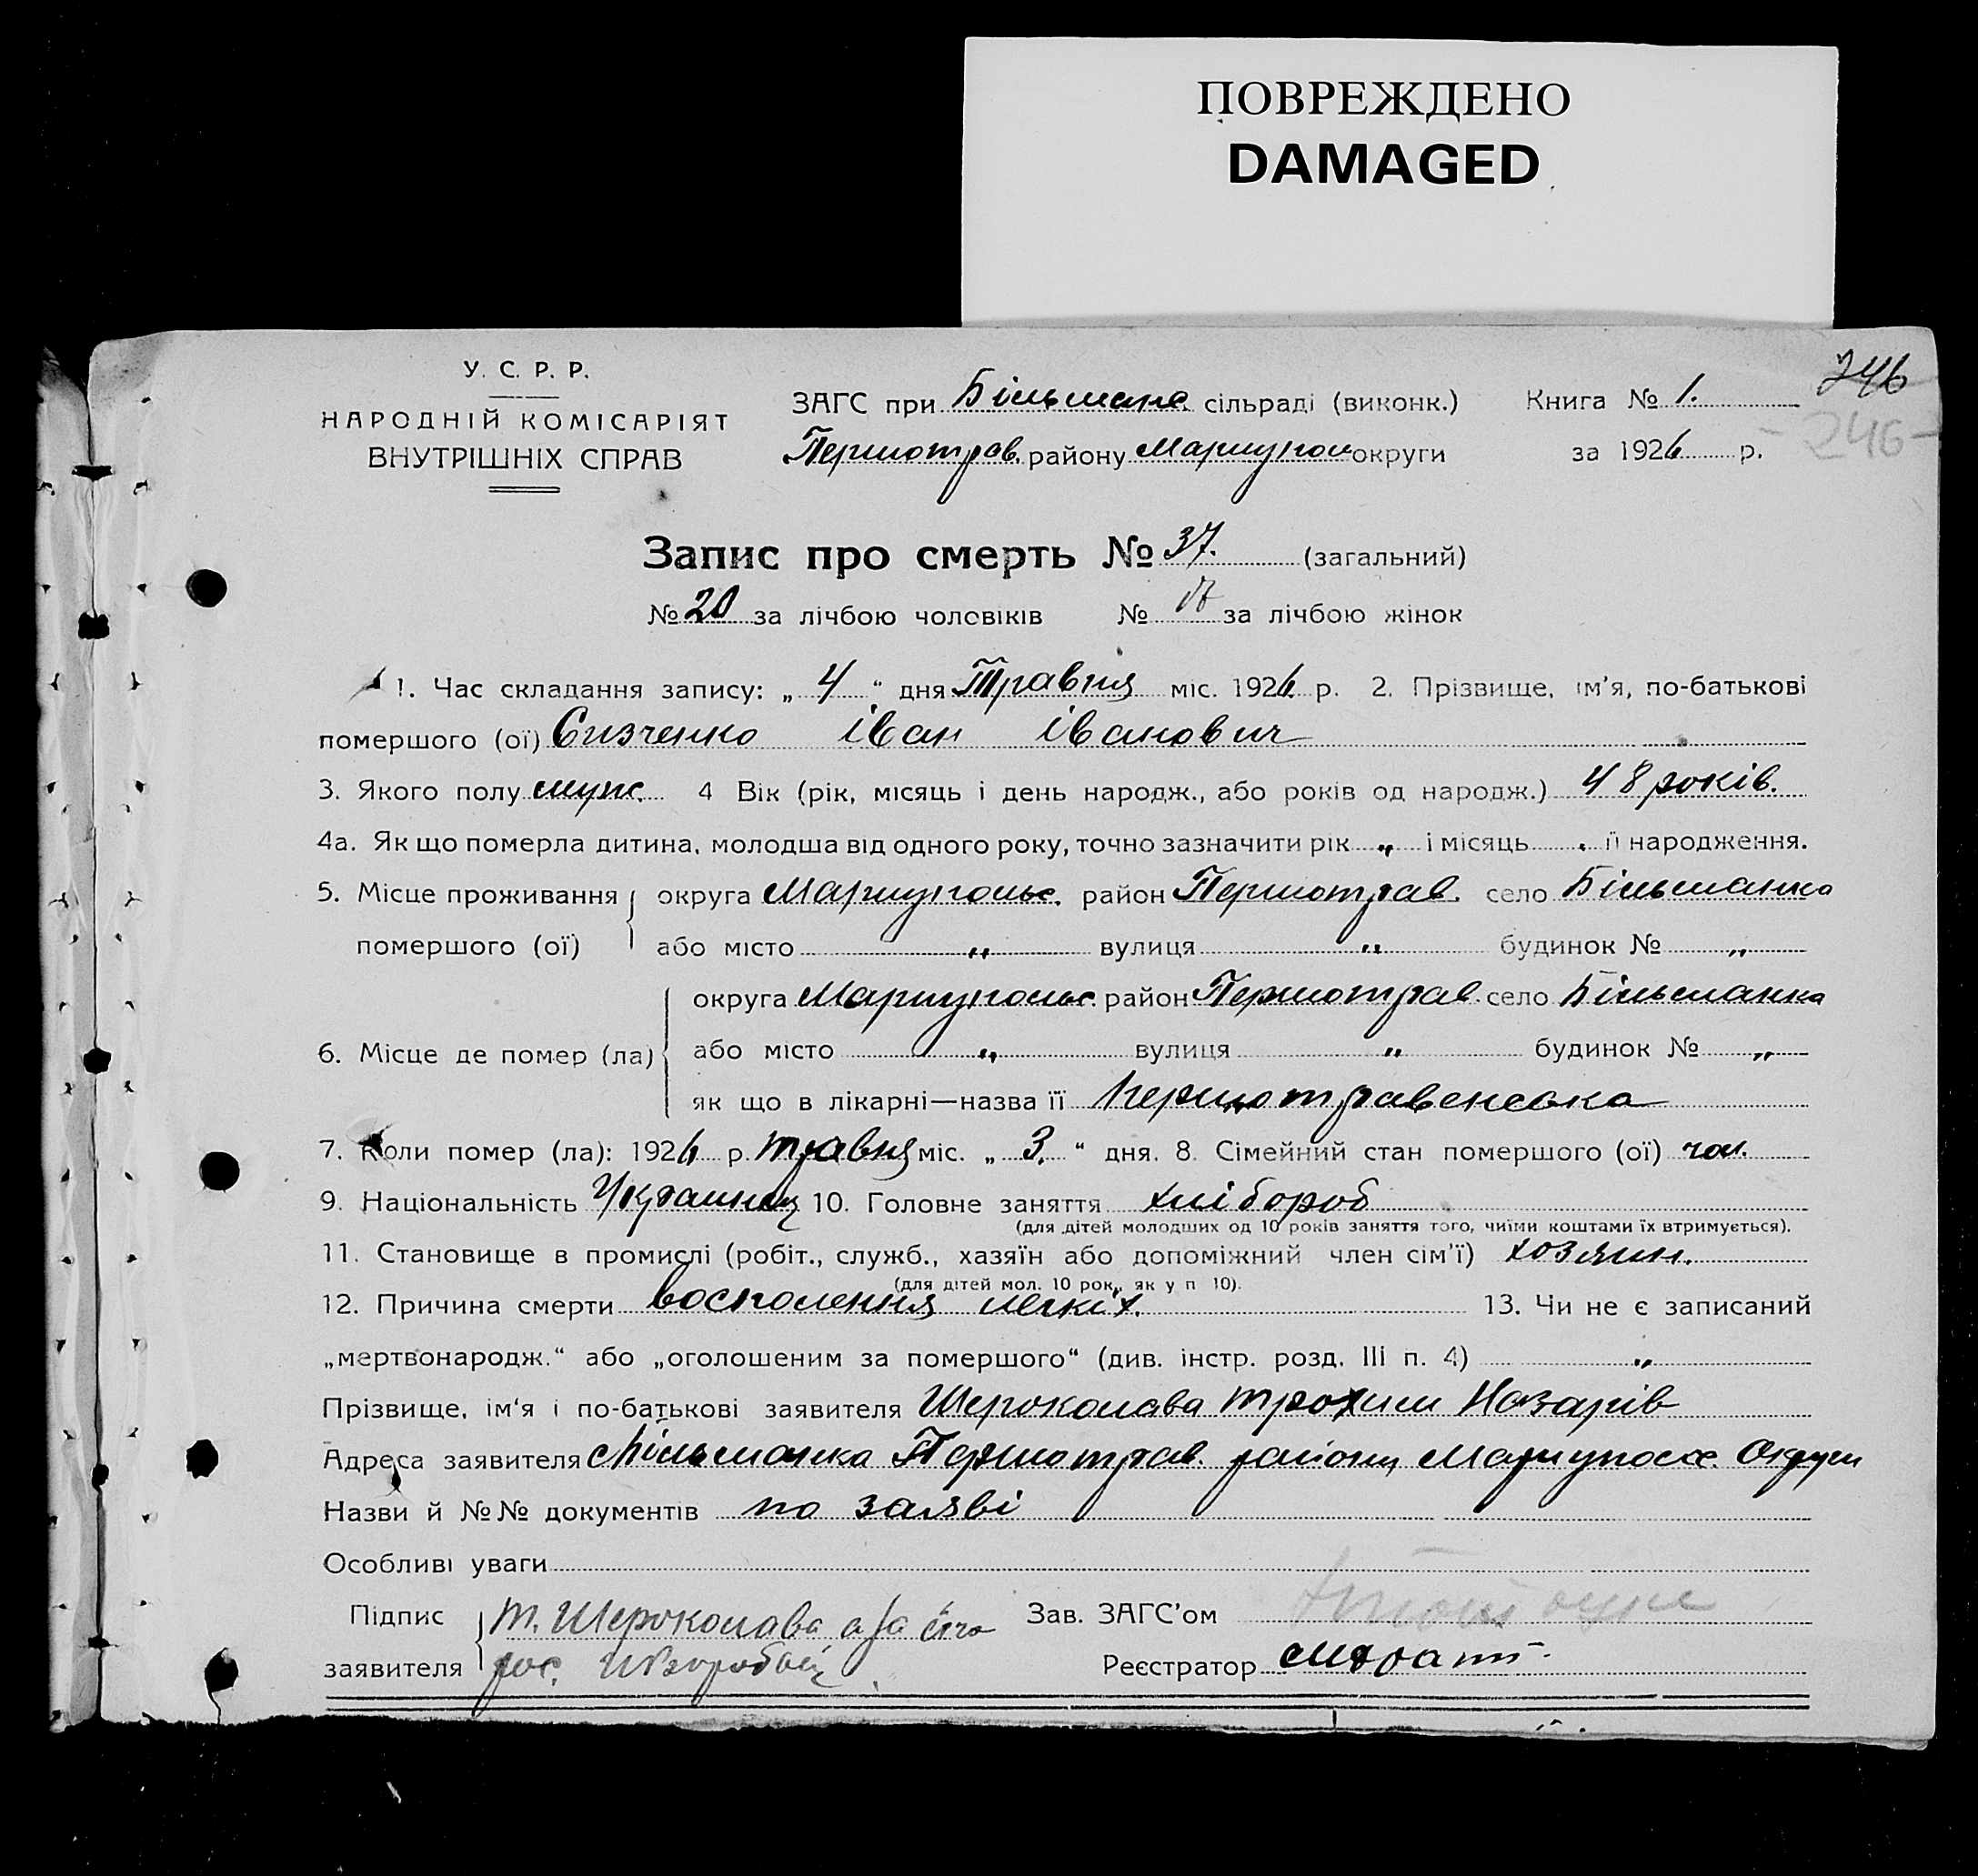 ПОВРЕЖДЕНО
DAMAGED
246
У. С. Р. Р.
НАРОДНІЙ КОМІСАРІЯТ
ВНУТРІШНІХ СПРАВ
ЗАГС при Більманс. сільраді (виконк.) Книга № 1.
Першотрав. району Маріупол округи за 1926 р.
246
Запис про смерть № 37. (загальний)
№ 20 за лічбою чоловіків № за лічбою жінок
1. Час складання запису: „ 4 “ дня Травня міс. 1926 р. 2. Прізвище, ім'я, по-батькові
помершого (ої) Сизченко Іван Іванович
3. Якого полу муж. 4 Вік (рік, місяць і день народж., або років од народж.) 48 років.
4а. Як що померла дитина, молодша від одного року, точно зазначити рік „ і місяць „ її народження.
5. Місце проживання округа Маріупольс. район Першотрав. село Більманка
помершого (ої) або місто „ вулиця „ будинок № „
округа Маріупольс. район Першотрав. село Більманка
6. Місце де помер (ла) або місто „ вулиця „ будинок № „
як що в лікарні—назва її Першотравенська
7. Коли помер (ла): 1926 р. травня міс. „ 3. “ дня. 8. Сімейний стан помершого (ої) чол.
9. Національність Украинец 10. Головне заняття хлібороб
(для дітей молодших од 10 років заняття того, чиїми коштами їх втримується).
11. Становище в промислі (робіт., служб., хазяїн або допоміжний член сім'ї) хозяин.
(для дітей мол. 10 рок., як у п 10).
12. Причина смерти восполення легких. 13. Чи не є записаний
„мертвонародж.“ або „оголошеним за помершого“ (див. інстр. розд. III п. 4) „
Прізвище, ім'я і по-батькові заявителя Шероколава Трохим Назарів
Адреса заявителя Більманка Першотрав. району Маріупольс. Округи
Назви й №№ документів по заяві
Особливі уваги
Підпис Т. Шероколава а за
заявителя
Зав. ЗАГС'ом
Реєстратор